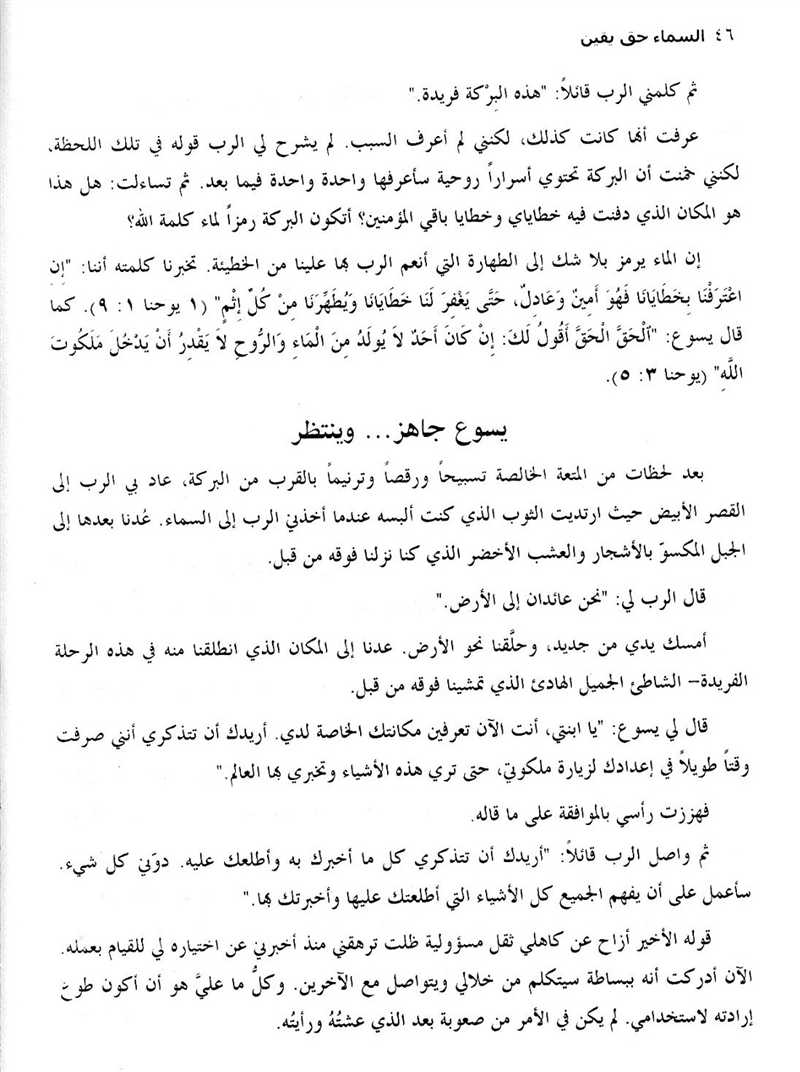 ٤٦ السماء حق يقين
ثم كلمني الرب قائلاً: "هذه البِرْكة فريدة."
عرفت أنها كانت كذلك، لكنني لم أعرف السبب. لم يشرح لي الرب قوله في تلك اللحظة،
لكنني خمنت أن البركة تحتوي أسراراً روحية سأعرفها واحدة واحدة فيما بعد. ثم تساءلت: هل هذا
هو المكان الذي دفنت فيه خطاياي وخطايا باقي المؤمنين؟ أتكون البركة رمزاً لماء كلمة الله؟
إن الماء يرمز بلا شك إلى الطهارة التي أنعم الرب بها علينا من الخطيئة. تخبرنا كلمته أننا: "إِن
اعْتَرَفْنَا بِخَطَايَانَا فَهُوَ أَمِينٌ وَعَادِلٌ، حَتَّى يَغْفِرَ لَنَا خَطَايَانَا وَيُطَهِّرَنَا مِنْ كُلِّ إِثْمٍ" (١ يوحنا ١: ٩). كما
قال يسوع: "اَلْحَقَّ الْحَقَّ أَقُولُ لَكَ: إِنْ كَانَ أَحَدٌ لاَ يُولَدُ مِنَ الْمَاءِ وَالرُّوحِ لاَ يَقْدِرُ أَنْ يَدْخُلَ مَلَكُوتَ
اللَّهِ" (يوحنا ٣: ٥).
يسوع جاهز... وينتظر
بعد لحظات من المتعة الخالصة تسبيحاً ورقصاً وترنيماً بالقرب من البركة، عاد بي الرب إلى
القصر الأبيض حيث ارتديت الثوب الذي كنت ألبسه عندما أخذني الرب إلى السماء. عُدنا بعدها إلى
الجبل المكسوّ بالأشجار والعشب الأخضر الذي كنا نزلنا فوقه من قبل.
قال الرب لي: "نحن عائدان إلى الأرض."
أمسك يدي من جديد، وحلَّقنا نحو الأرض. عدنا إلى المكان الذي انطلقنا منه في هذه الرحلة
الفريدة– الشاطئ الجميل الهادئ الذي تمشينا فوقه من قبل.
قال لي يسوع: "يا ابنتي، أنت الآن تعرفين مكانتك الخاصة لدي. أريدك أن تتذكري أنني صرفت
وقتاً طويلاً في إعدادك لزيارة ملكوتي، حتى تري هذه الأشياء وتخبري بها العالم."
فهززت رأسي بالموافقة على ما قاله.
ثم واصل الرب قائلاً: "أريدك أن تتذكري كل ما أخبرك به وأطلعك عليه. دوّني كل شيء.
سأعمل على أن يفهم الجميع كل الأشياء التي أطلعتك عليها وأخبرتك بها."
قوله الأخير أزاح عن كاهلي ثقل مسؤولية ظلت ترهقني منذ أخبرني عن اختياره لي للقيام بعمله.
الآن أدركت أنه ببساطة سيتكلم من خلالي ويتواصل مع الآخرين. وكلُّ ما عليَّ هو أن أكون طوع
إرادته لاستخدامي. لم يكن في الأمر من صعوبة بعد الذي عشتُهُ ورأيتُه.